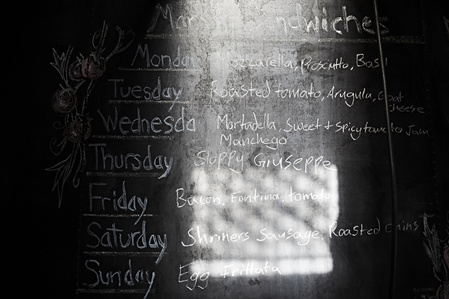 ndwiches
Monday Mozzarella, Prosciutto, Basil
Tuesday Roasted tomato, Arugula, Goat
cheese
Wednesda Mortadella, Sweet + Spicy tomato Jam
Manchego
Thursday Sloppy Giuseppe
Friday Bacon, Fontina, tomato
Saturday Shriners Sausage, Roasted Onins
Sunday Egg Frittata